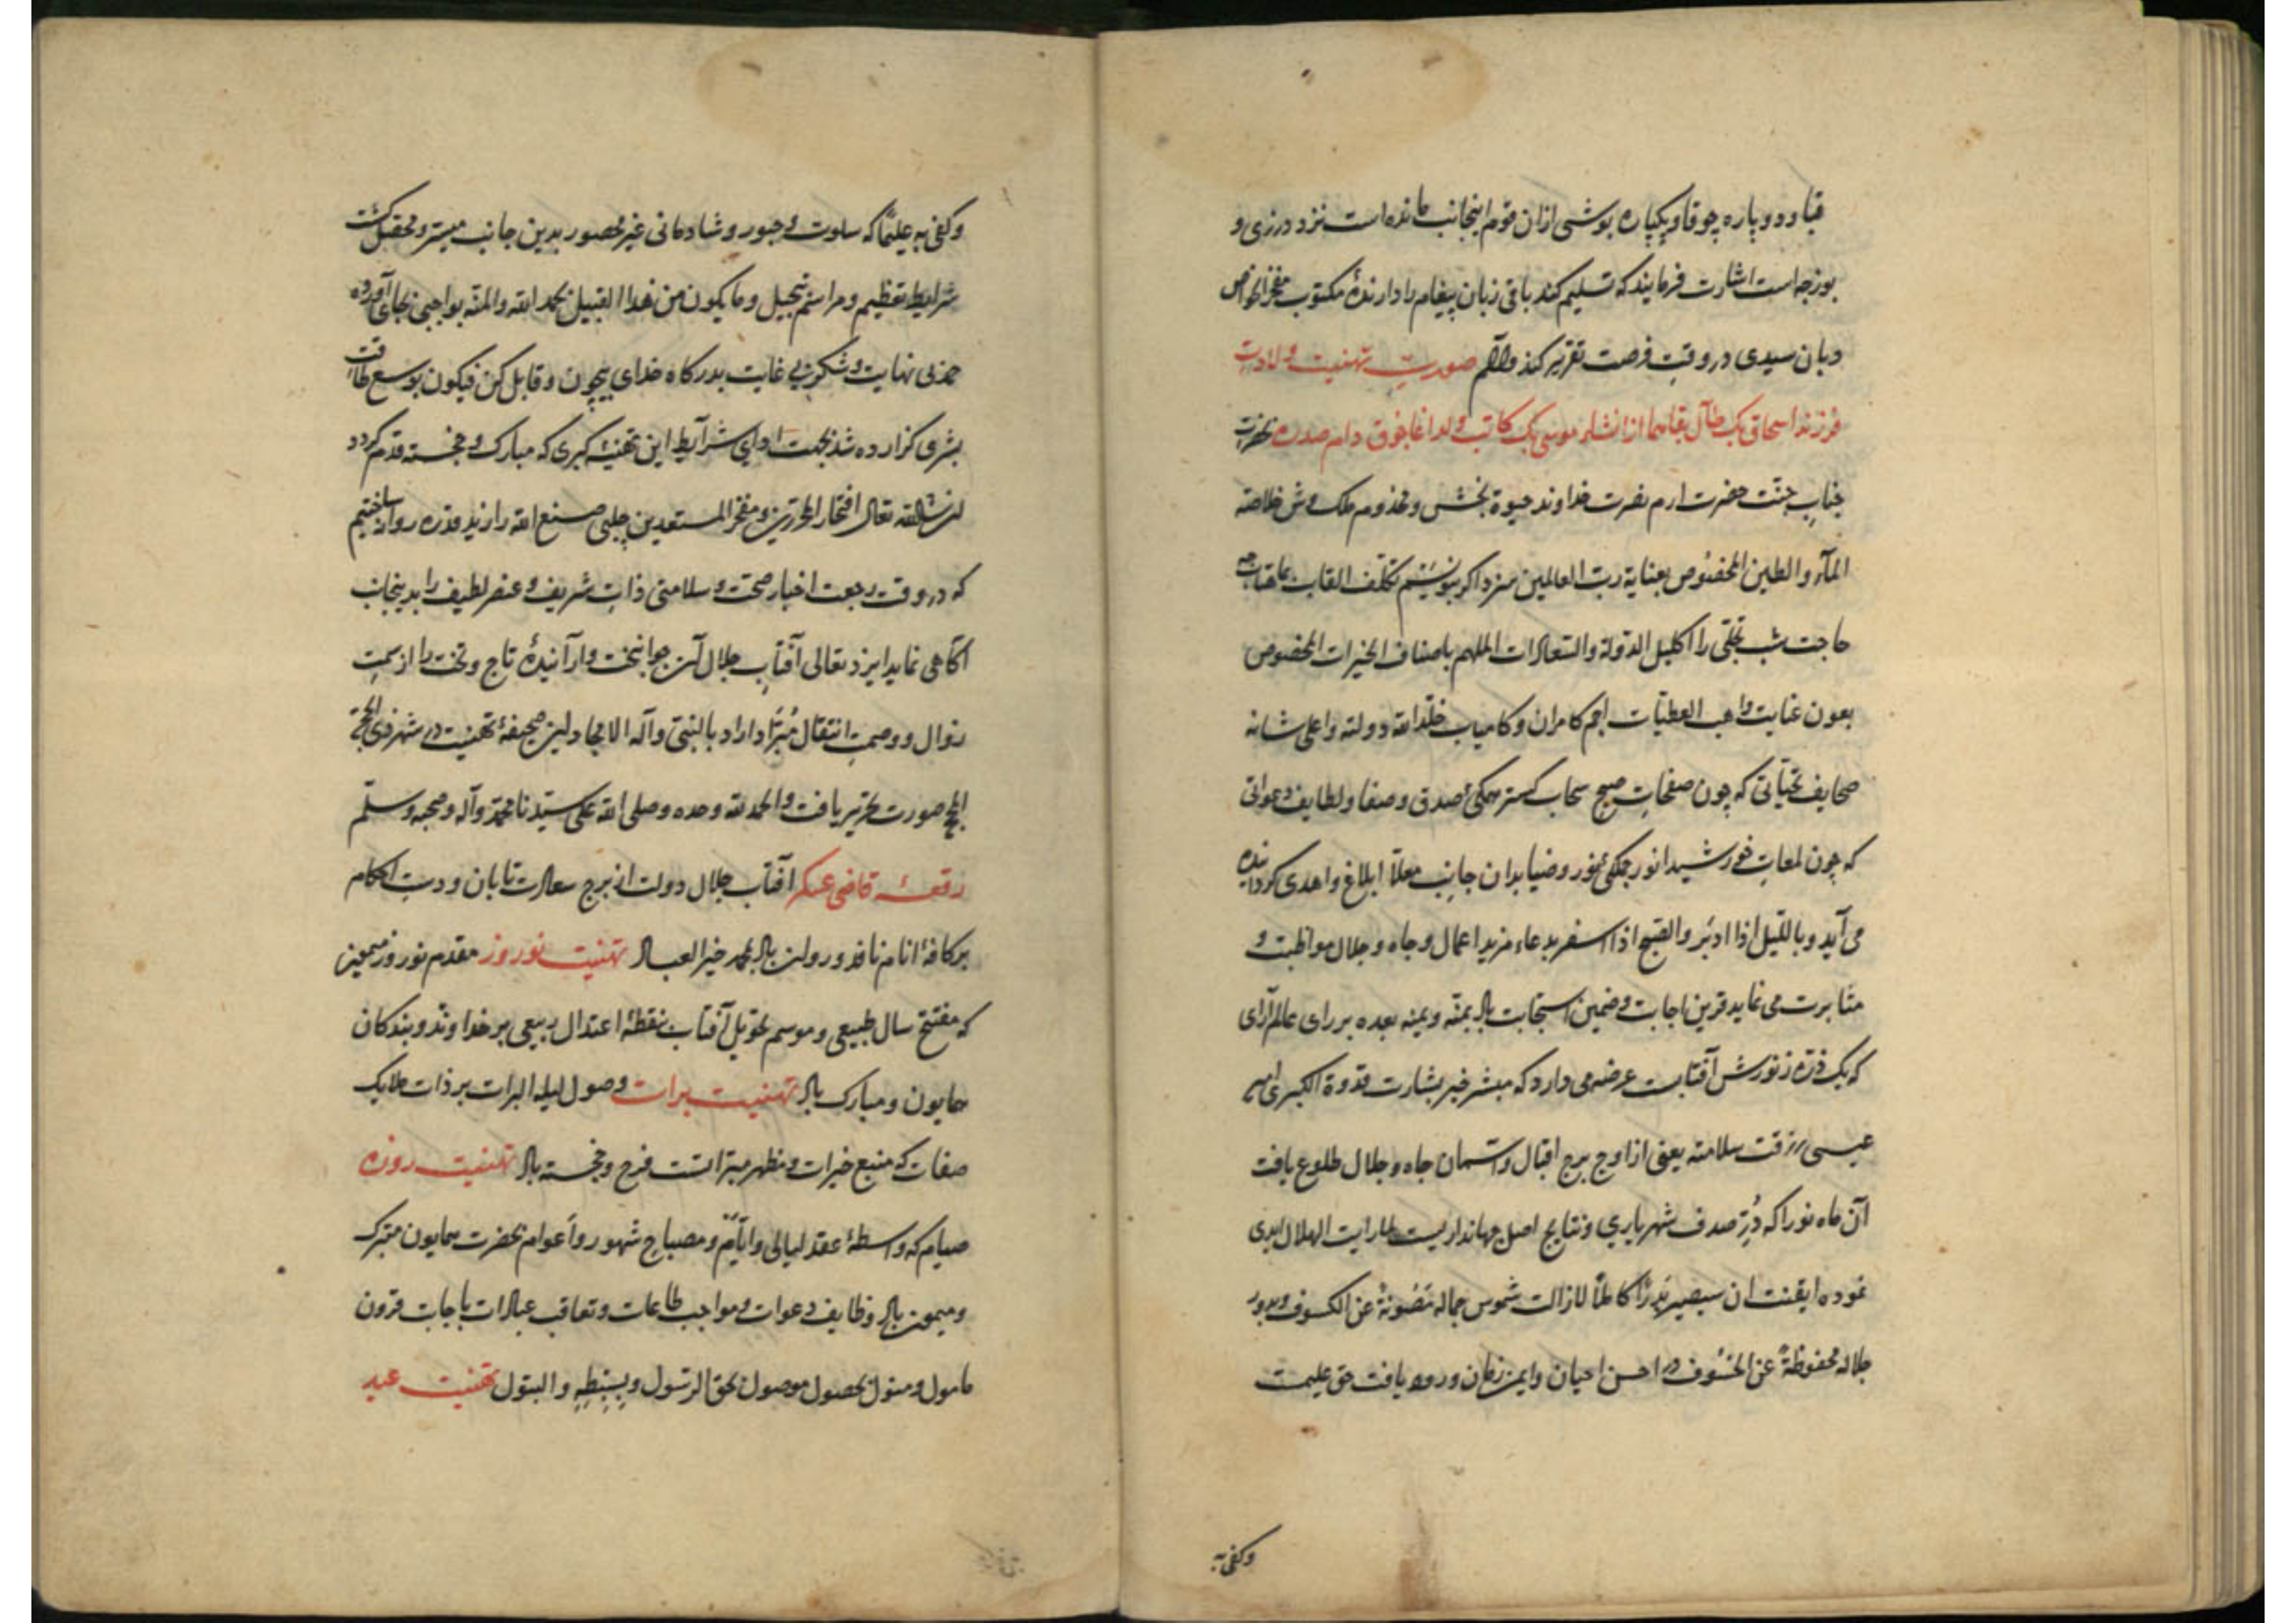 قبا و دو پاره چوقا و یکپاره بوشی ازان قوم اینجانب مانده است نزد درزی و
بوزجه است اشارت فرمایند که تسلیم کند باقی زبان پیغام را دارندهٔ مکتوب مفخر الخواص
دبان سیدی در وقت فرصت تقریر کند والسلام صورت تهنیت ولادت
فرزند اسحاق بک طال بقاهما از انشاء موسی بک کاتب ولد اغا دام صدره بحضرت
جناب جنت حضرت ارم نضرت خداوند حیوة بخش و مخدوم ملک وش خلاصه
المآء والطین المخصوص بعنایة رب العالمین سزد اکر بنویسم تکلف القاب بماهتاب چه
حاجت شب تجلی را اکلیل الدولة والسعادات الملهم باصناف الخیرات المخصوص
بعون عنایت واهب العطیات امیر کامران و کامیاب خلد الله دولته واعلی شانه
صحایف تحیاتی که چون صفحات صبح سحاب کستر همکی صدق و صفا و لطایف دعواتی
که چون لمعات خورشید انور جمکی نور و ضیا بدان جانب معلا ابلاغ و اهدی کردانیده
می آید و باللیل اذا ادبر والصبح اذا اسفر بدعاء مزید اعمال و جاه و جلال مواظبت و
مثابرت می نماید قرین اجابت و ضمین استجابت باد بمنه و یمنه بعده بر رای عالم آرای
که یک ذره ز نورش آفتابست عرضه می دارد که مبشر خبر بشارت قدوة الکبری امیر
عیسی رزقت سلامته یعنی از اوج برج اقبال و آسمان جاه و جلال طلوع یافت
آن ماه نو را که دُرّ صدف شهریاری و نتایج اصل جهانداریست لما رایت الهلال ابدی
نموده ایقنت ان سیصیر بدرًا کاملًا لازالت شموس جماله مصونةً عن الکسوف و بدور
جلاله محفوظةً عن الخسوف در احسن احیان و ایمن زمان ورود یافت حق علیمست
وکفی به
وکفی به علیمًا که سلوت و حبور و شادمانی غیر محصور بدین جانب میسر و محقق کشت
شرایط تعظیم و مراسم تبجیل و ما یکون من هذا القبیل بحمد الله والمنه بواجبی بجای آورده
حمد بی نهایت و شکر بی غایت بدرکاه خدای بیچون و قابل کن فیکون بوسع طاقت
بشری کزارده شد بجهت ادای شرآیط این تهنیهٔ کبری که مبارک و خجسته قدم کردد
ان شاء الله تعالی افتخار المحررین و مفخر المستعدین چلبی صنع الله را زید قدره روان ساختیم
که در وقت رجعت اخبار صحت و سلامتی ذات شریف و عنصر لطیف را بدینجانب
آکاهی نماید ایزد تعالی آفتاب جلال آن جوانبخت و آرآیندهٔ تاج و تخت را از سمت
زوال و وصمت انتقال مُبَرّا داراد بالنبی وآله الامجاد این صحیفهٔ تهنیت در شهر ذی الحجة
الحج صورت تحریر یافت والحمد لله وحده وصلی الله علی سیّدنا محمّد وآله وصحبه وسلّم
رقعهٔ قاضی عسکر آفتاب جلال دولت از برج سعادت تابان و دست احکام
بر کافهٔ انام نافذ و روان باد بمحمد خیر العباد تهنیت نوروز مقدم نوروز میمون
که مفتتح سال طبیعی و موسم تحویل آفتاب بنقطهٔ اعتدال ربیعی بر خداوند و بندکان
همایون و مبارک باد تهنیت برات وصول لیله البرات بر ذات ملایک
صفات که منبع خیرات و مظهر مبراتست فرخ و خجسته باد تهنیت روزه
صیام که واسطهٔ عقد لیالی و ایّام و مصباح شهور و اعوام بحضرت همایون متبرک
و میمون باد وظایف دعوات و مواجب طاعات و تعاقب عبادات باجابت قرون
مامول و مسئول بحصول موصول بحق الرسول و بسبطه والبتول تهنیت عید